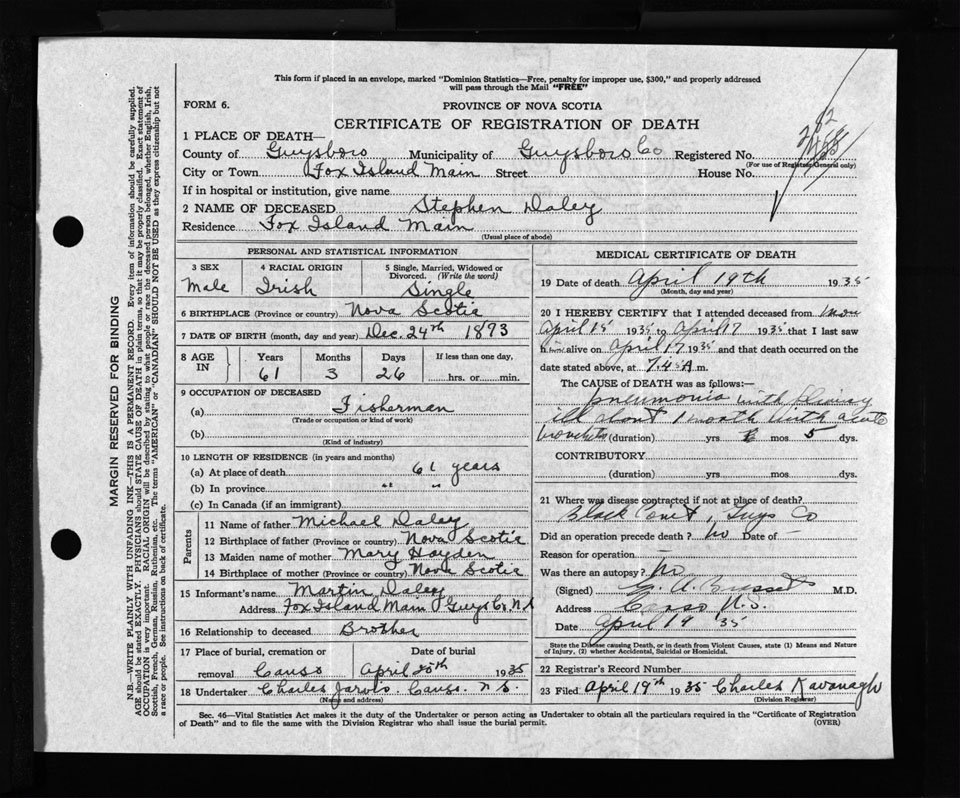 This form if placed in an envelope, marked "Dominion Statistics—Free, penalty for improper use, $300," and properly addressed
will pass through the Mail "FREE"
FORM 6.
PROVINCE OF NOVA SCOTIA
CERTIFICATE OF REGISTRATION OF DEATH
282
1 PLACE OF DEATH—
County of Guysboro Municipality of Guysboro Co Registered No.
(For use of Registrar General only)
City or Town Fox Island Main Street House No.
If in hospital or institution, give name
2 NAME OF DECEASED Stephen Daley
Residence Fox Island Main
(Usual place of abode)
PERSONAL AND STATISTICAL INFORMATION
3 SEX 4 RACIAL ORIGIN 5 Single, Married, Widowed or Divorced. (Write the word)
Male Irish Single
6 BIRTHPLACE (Province or country) Nova Scotia
7 DATE OF BIRTH (month, day and year) Dec. 24th 1873
8 AGE IN Years Months Days If less than one day,
61 3 26 hrs. or min.
9 OCCUPATION OF DECEASED
(a) Fisherman
(Trade or occupation or kind of work)
(b)
(Kind of industry)
10 LENGTH OF RESIDENCE (in years and months)
(a) At place of death 61 years
(b) In province " "
(c) In Canada (if an immigrant)
Parents
11 Name of father Michael Daley
12 Birthplace of father (Province or country) Nova Scotia
13 Maiden name of mother Mary Hayden
14 Birthplace of mother (Province or country) Nova Scotia
15 Informant's name Martin Daley
Address Fox Island Main Guys Co. N.S
16 Relationship to deceased Brother
17 Place of burial, cremation or removal Date of burial
Canso April 20th 1935
18 Undertaker Charles Jarvis. Canso. N.S.
(Name and address)
MEDICAL CERTIFICATE OF DEATH
19 Date of death April 19th 1935
(Month, day and year)
20 I HEREBY CERTIFY that I attended deceased from
April 15 1935 to April 17 1935 that I last saw
h alive on April 17 1935 and that death occurred on the
date stated above, at 7.45 A m.
The CAUSE OF DEATH was as follows:—
Pneumonia with
ill about 1 month with acute
bronchitis (duration) yrs mos 5 dys.
CONTRIBUTORY
(duration) yrs mos dys.
21 Where was disease contracted if not at place of death?
Black , Guys Co
Did an operation precede death? No Date of —
Reason for operation —
Was there an autopsy? No
(Signed) M.D.
Address Canso N.S.
Date April 19 '35
State the Disease causing Death, or in death from Violent Causes, state (1) Means and Nature of Injury, (2) whether Accidental, Suicidal or Homicidal.
22 Registrar's Record Number
23 Filed April 19th 1935 Charles Kavanagh
(Division Registrar)
Sec. 46—Vital Statistics Act makes it the duty of the Undertaker or person acting as Undertaker to obtain all the particulars required in the "Certificate of Registration
of Death" and to file the same with the Division Registrar who shall issue the burial permit. (OVER)
MARGIN RESERVED FOR BINDING
N.B.—WRITE PLAINLY WITH UNFADING INK—THIS IS A PERMANENT RECORD. Every item of information should be carefully supplied.
AGE should be stated EXACTLY. PHYSICIANS should STATE CAUSE OF DEATH in plain terms, so that it may be properly classified. Exact statement of
OCCUPATION is very important. RACIAL ORIGIN will be described by stating to what people or race the deceased person belonged, whether English, Irish,
Scottish, French, German, Russian, Ruthenian, etc. The terms "AMERICAN" or "CANADIAN" SHOULD NOT BE USED as they express citizenship but not
a race or people. See instructions on back of certificate.